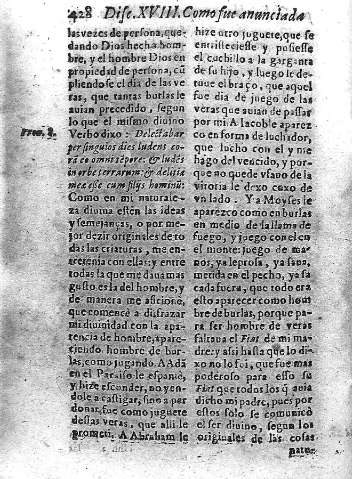 428 Disc. XVIII. Como fue anunciada
las vezes de persona, que-
dando Dios hecha hom-
bre, y el hombre Dios en
propiedad de persona, cũ
pliendose el dia de las ve
ras, que tantas burlas le
auian precedido, segun
lo que el mismo diuino
Verbo dixo: Delectabar
Prou. 8.
per singulos dies ludens co-
rã eo omni tẽpore: & ludẽs
in orbe terrarum: & delitiæ
meæ esse cum filijs hominũ:
Como en mi naturale-
za diuina estén las ideas
y semejanças, o por me-
jor dezir originales de to
das las criaturas, me en-
tretenia con ellas: y entre
todas la que me daua mas
gusto es la del hombre, y
de manera me aficionè,
que comencè a disfrazar
mi diuinidad con la apa-
rencia de hombre, apare-
ciendo hombre de bur-
las, como jugando. A Adã
en el Paraiso le espanto,
y hize esconder, no yen-
dole a castigar, sino a per
donar, fue como juguete
dessas veras, que alli le
prometi. A Abraham le
hize otro juguete, que se
entristeciesse y pusiesse
el cuchillo a la garganta
de su hijo, y luego le de-
tuue el braço, que aquel
fue dia de juego de las
veras que auian de passar
por mi. A Iacob le aparez
co en forma de luchador,
que lucho con el y me
hago del vencido, y por-
que no quede vfano de la
vitoria le dexo coxo de
vn lado. Y a Moyses le
aparezco como en burlas
en medio de la llama de
fuego, y juego con el en
el monte: juego de ma-
nos, ya leprosa, ya sana,
metida en el pecho, ya sa
cada fuera, que todo era
esto aparecer como hom
bre de burlas, porque pa-
ra ser hombre de veras
faltaua el Fiat de mi ma-
dre: y assi hasta que lo di-
xo no lo fui, que fue mas
poderoso para esso su
Fiat que todos los q̃ auia
dicho mi padre, pues por
estos solo se comunicò
el ser diuino, segun los
originales de las cosas
natu-